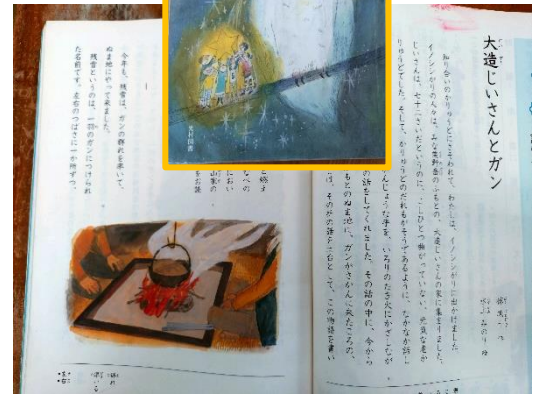 大造じいさんとガン
知り合いのかりゅうどにさそわれて、わたしは、イノシシがりに出かけました
イノシシがりの人々は、みな栗野岳のふもとの、大造じいさんの家に集まりました。
じいさんは、七十二さいだというのに、こしひとつ曲がっていない、元気な老か
りゅうどでした。そして、かりゅうどのだれもがそうであるように、なかなか話し
んじょうな手を、いろりのたき火にかざしなが
の話をしてくれました。その話の中に、今から
もとのぬま地に、ガンがさかんに来たころの、
は、その折の話を土台として、この物語を書い
今年も、残雪は、ガンの群れを率いて、
ぬま地にやって来ました。
残雪というのは、一羽のガンにつけられ
た名前です。左右のつばさに一か所ずつ、
光村図書